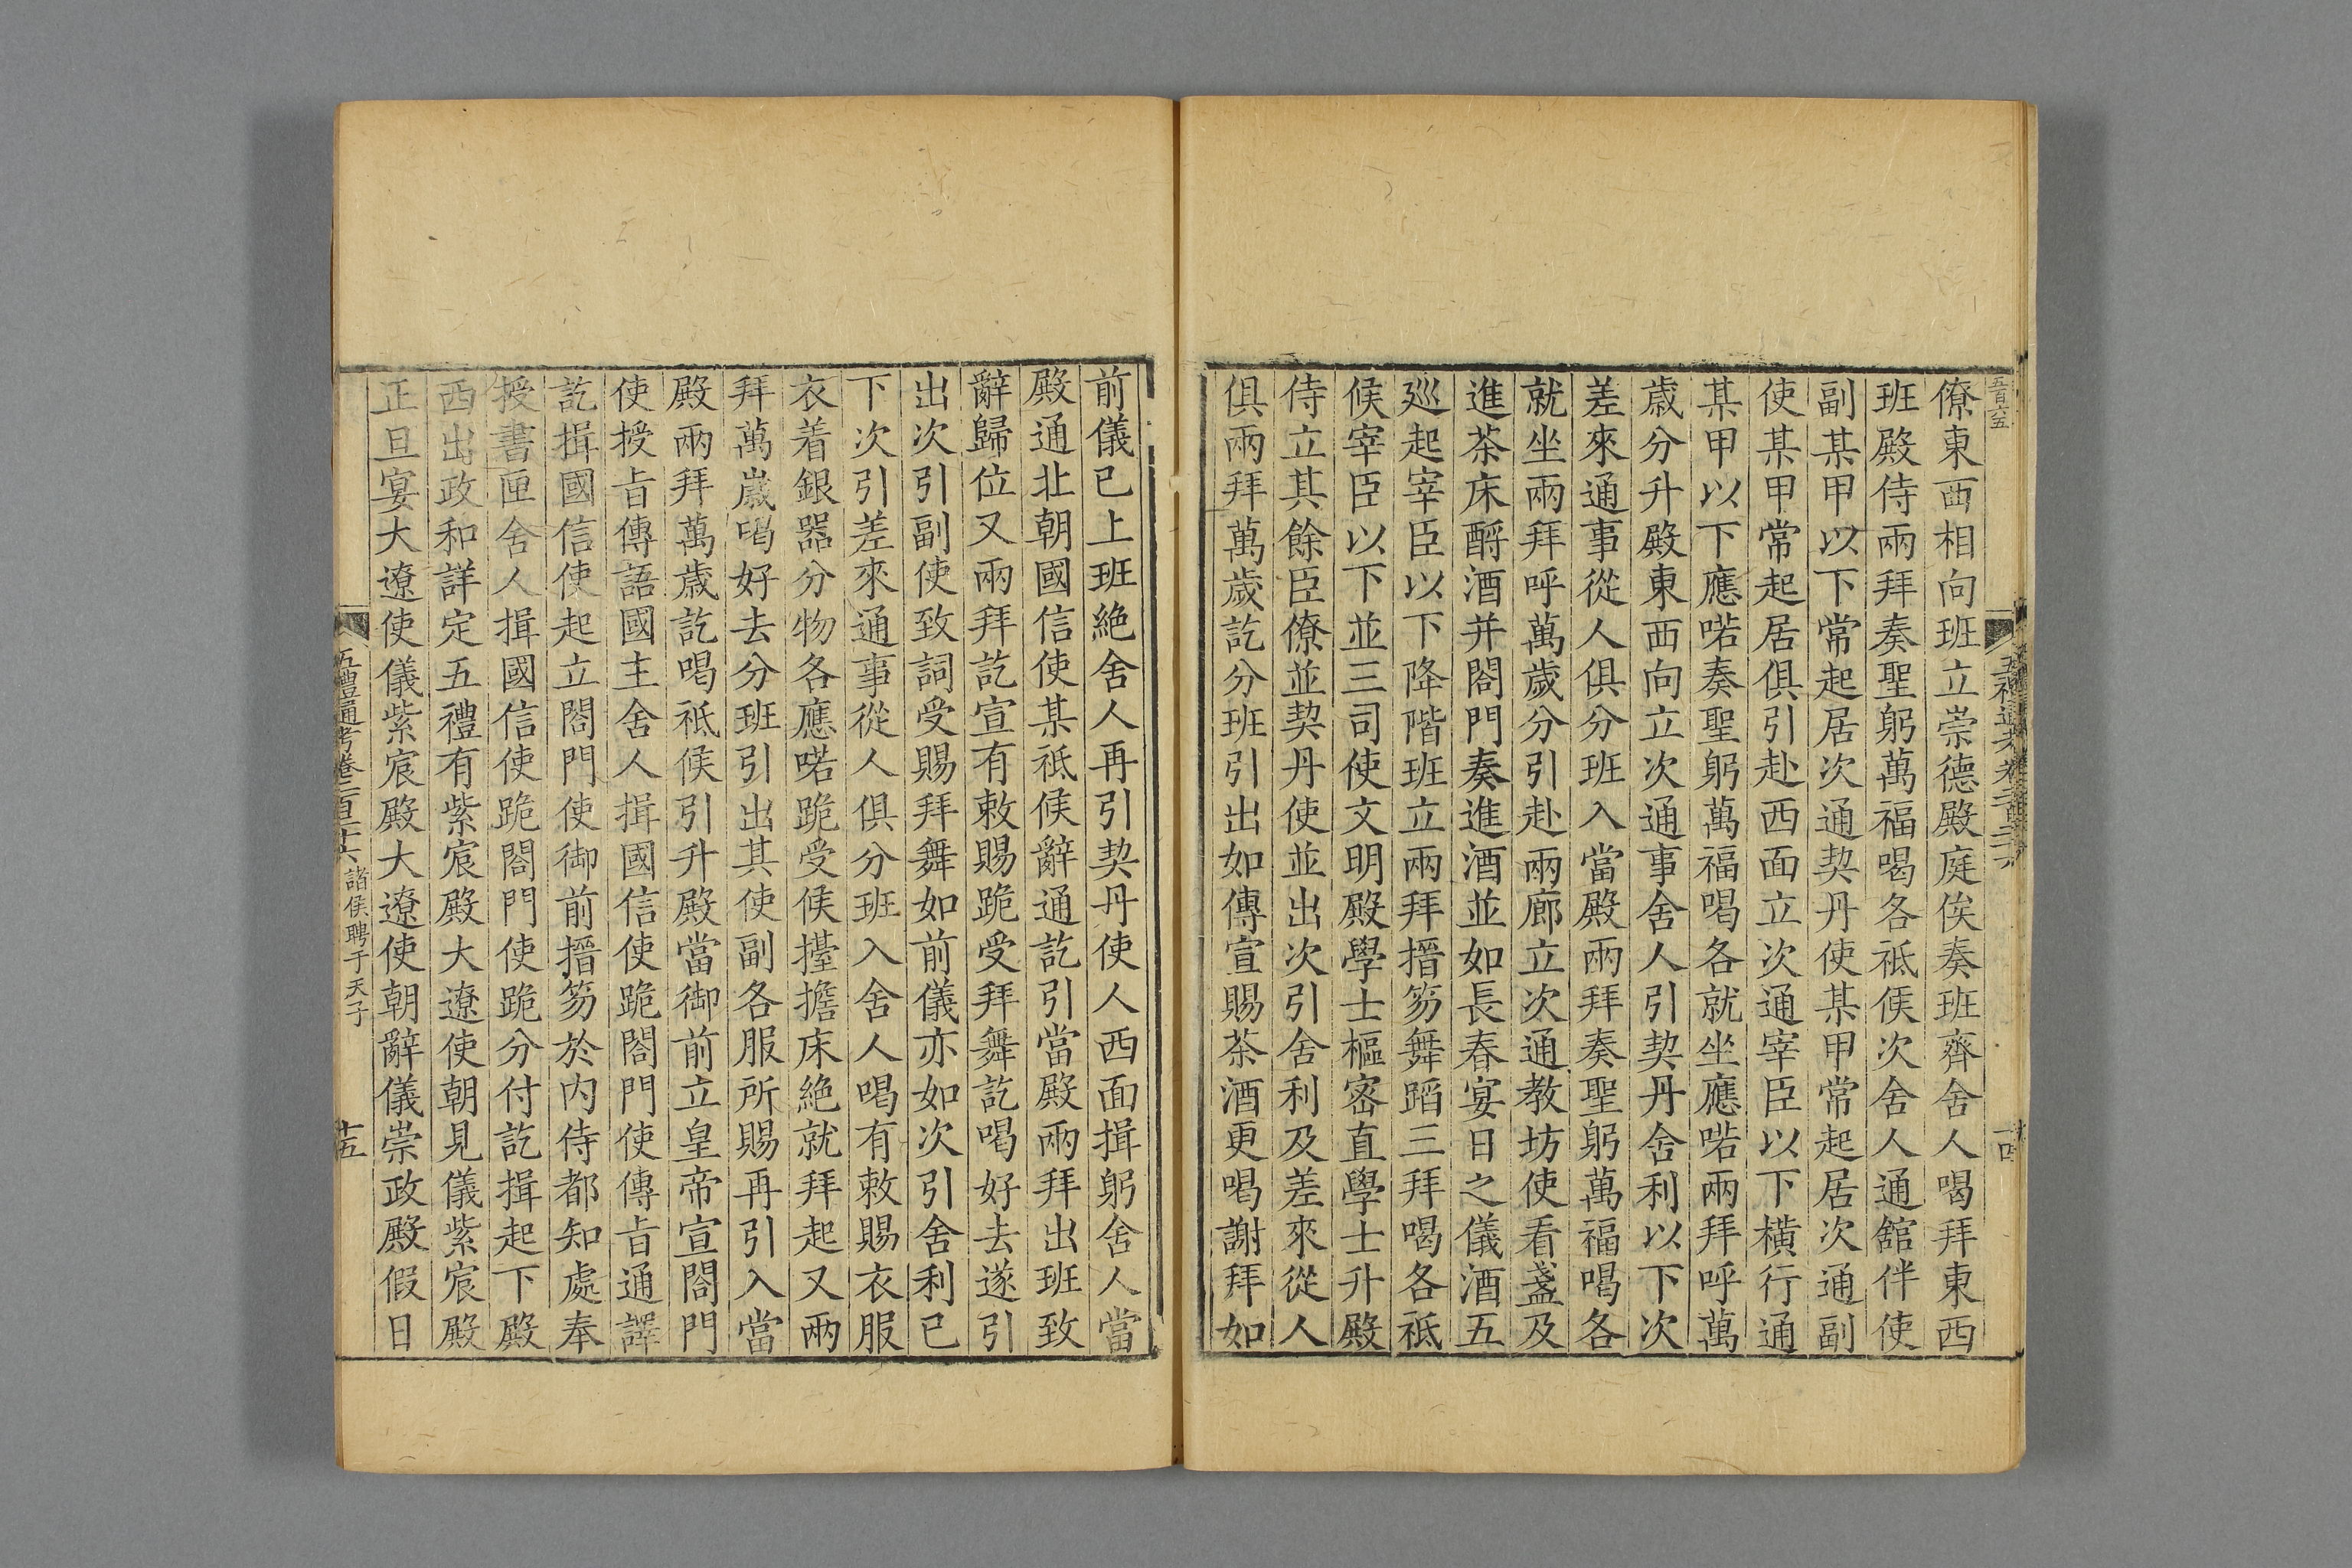 僚東西相向班立崇德殿庭俟奏班齊舍人喝拜東西
班殿侍兩拜奏聖躬萬福喝各祗候次舍人通舘伴使
副某甲以下常起居次通契丹使某甲常起居次通副
使某甲常起居俱引赴西面立次通宰臣以下橫行通
某甲以下應喏奏聖躬萬福喝各就坐應喏兩拜呼萬
歲分升殿東西向立次通事舍人引契丹舍利以下次
差來通事從人俱分班入當殿兩拜奏聖躬萬福喝各
就坐兩拜呼萬歲分引赴兩廊立次通教坊使看盞及
進茶床酹酒并閤門奏進酒並如長春宴日之儀酒五
廵起宰臣以下降階班立兩拜搢笏舞蹈三拜喝各祗
候宰臣以下並三司使文明殿學士樞密直學士升殿
侍立其餘臣僚並契丹使並出次引舍利及差來從人
俱兩拜萬歲訖分班引出如傳宣賜茶酒更喝謝拜如
前儀已上班絶舍人再引契丹使人西面揖躬舍人當
殿通北朝國信使某祗候辭通訖引當殿兩拜出班致
辭歸位又兩拜訖宣有敕賜跪受拜舞訖喝好去遂引
出次引副使致詞受賜拜舞如前儀亦如次引舍利已
下次引差來通事從人俱分班入舍人喝有敕賜衣服
衣着銀器分物各應喏跪受候擡擔床絶就拜起又兩
拜萬歲喝好去分班引出其使副各服所賜再引入當
殿兩拜萬歲訖喝祗候引升殿當御前立皇帝宣閤門
使授旨傳語國主舍人揖國信使跪閤門使傳旨通譯
訖揖國信使起立閤門使御前搢笏於内侍都知處奉
授書匣舍人揖國信使跪閤門使跪分付訖揖起下殿
西出政和詳定五禮有紫宸殿大遼使朝見儀紫宸殿
正旦宴大遼使儀紫宸殿大遼使朝辭儀崇政殿假日
五禮通考卷二百二十六 諸侯聘于天子
十五